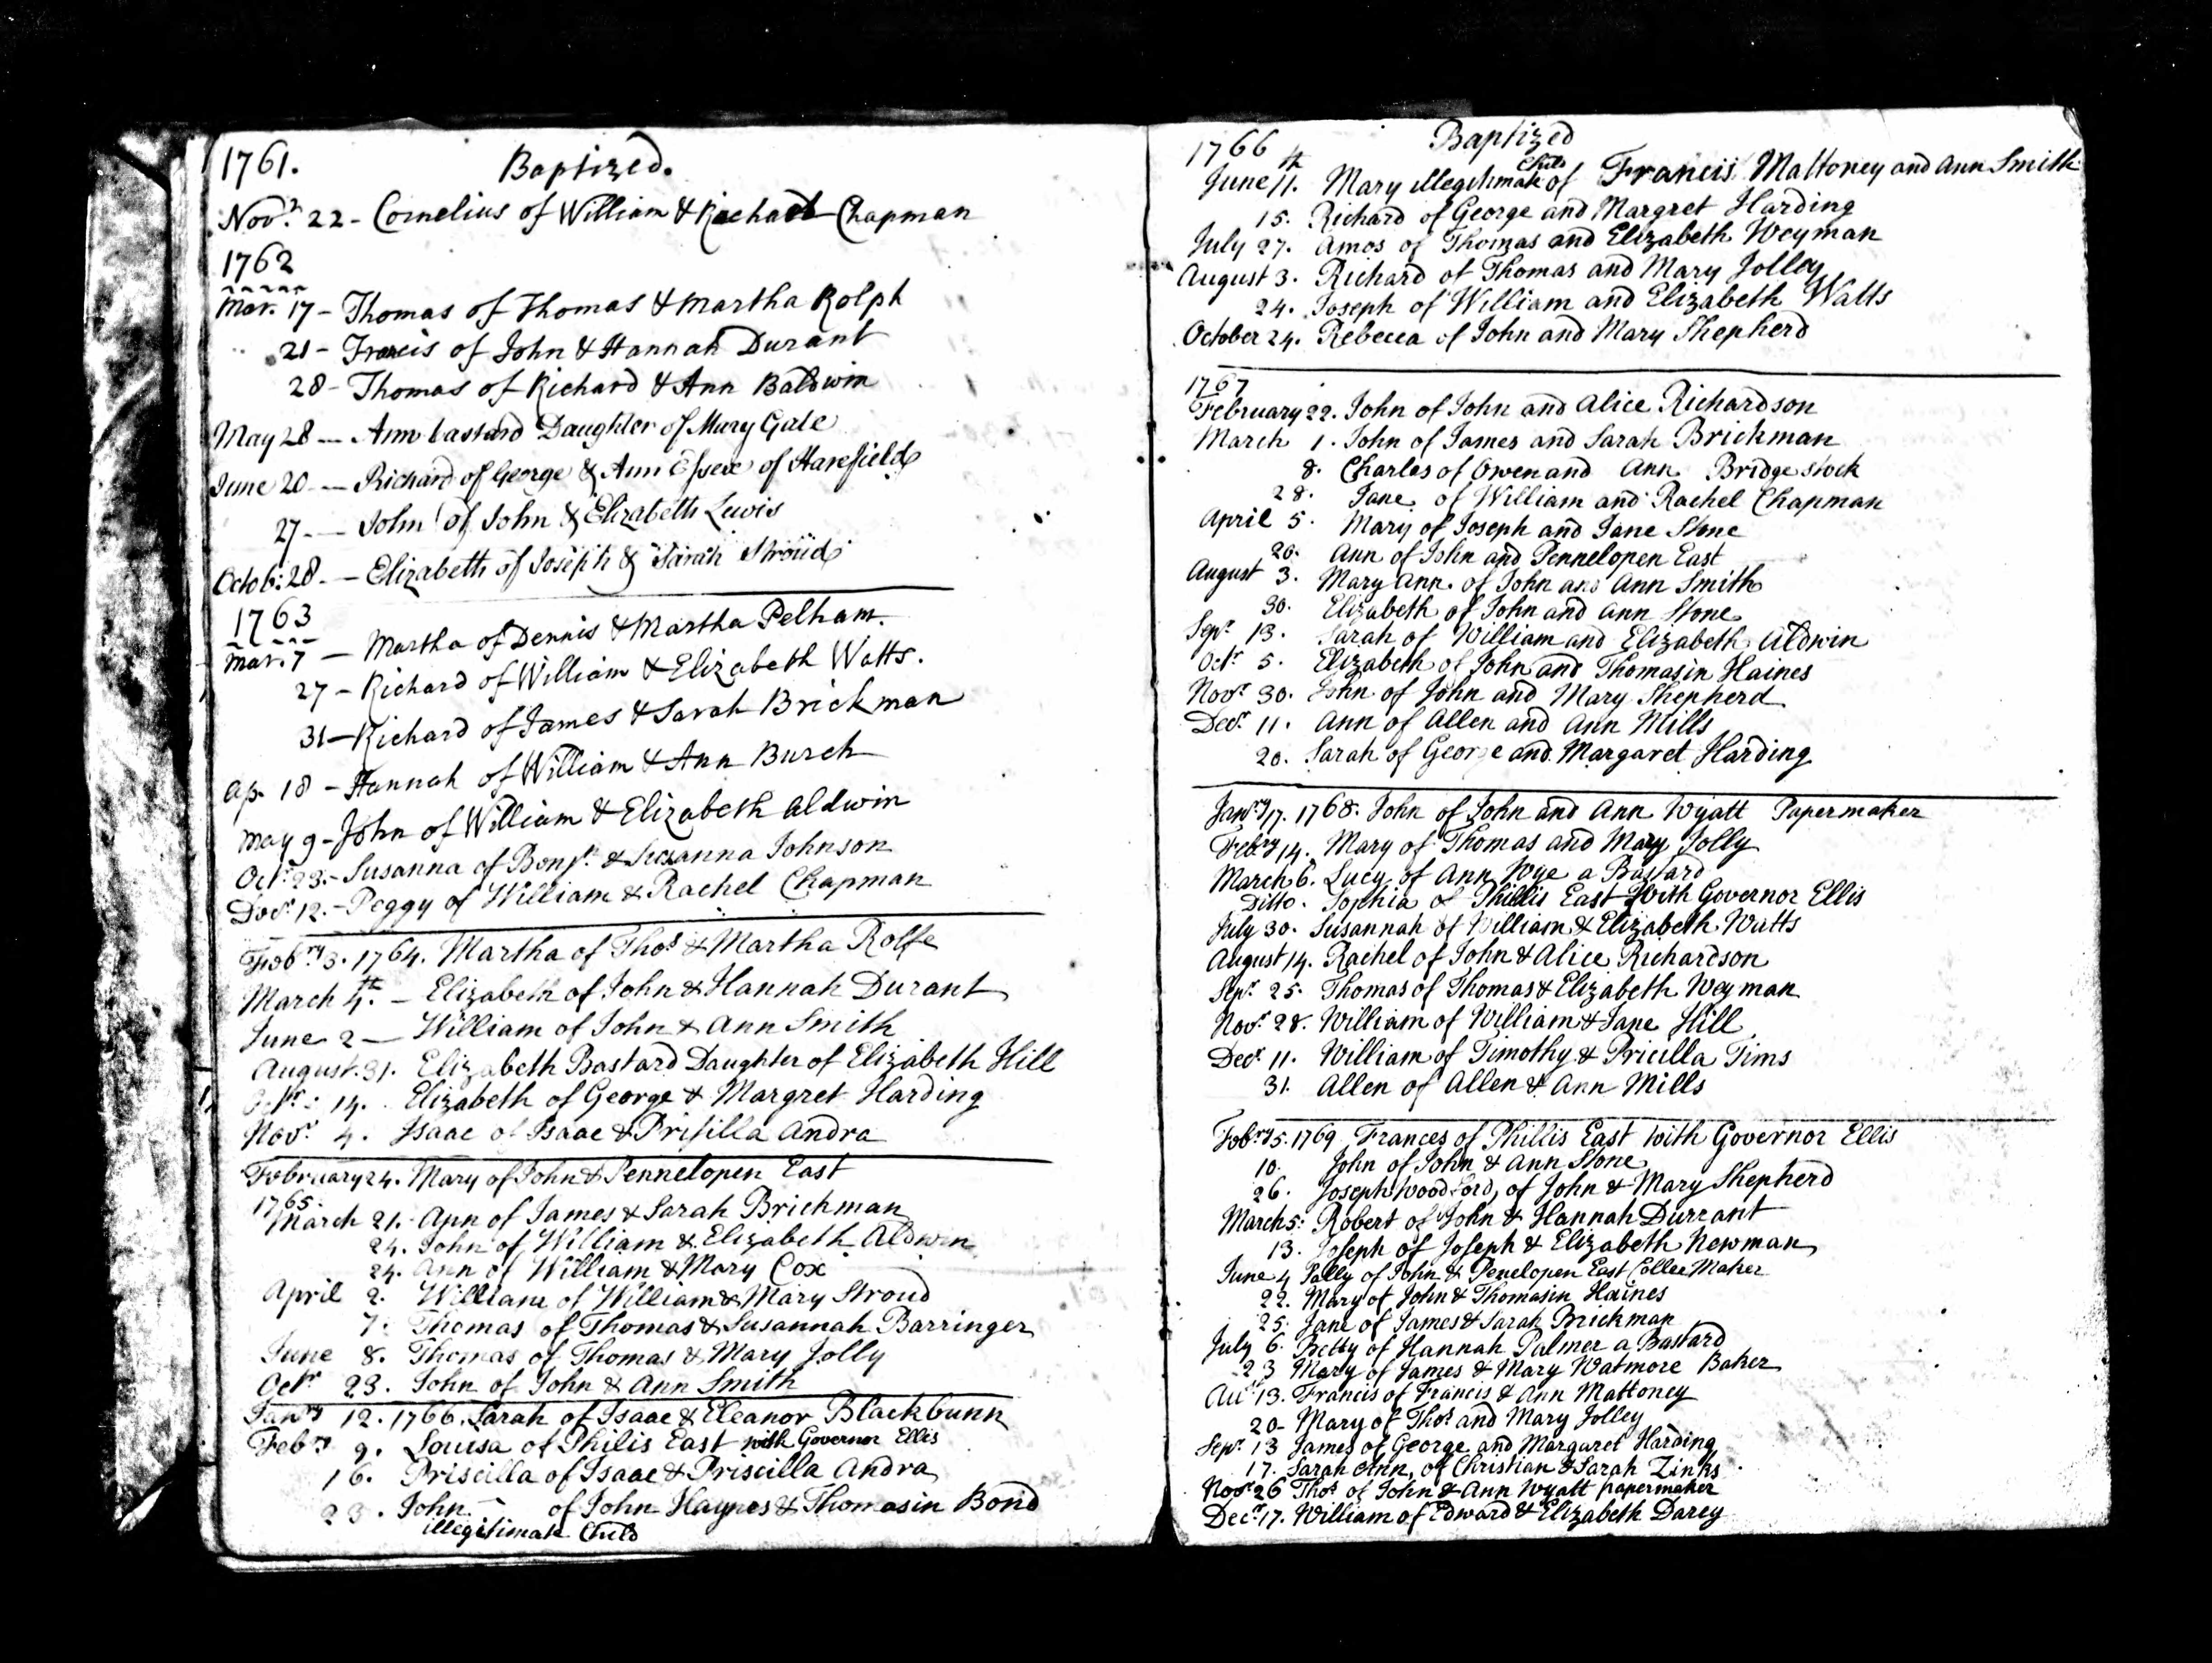 1761. Baptized.
Novr. 22 - Cornelius of William & Rachael Chapman
1762
Mar. 17 - Thomas of Thomas & Martha Rolph
21 - Francis of John & Hannah Durant
28 - Thomas of Richard & Ann Baldwin
May 28 - Ann bastard Daughter of Mary Gale
June 20 - Richard of George & Ann Essex of Harefield
27 - John of John & Elizabeth Lewis
Octob: 28 - Elizabeth of Joseph & Sarah Stroud
1763
Mar. 7 - Martha of Dennis & Martha Pelham.
27 - Richard of William & Elizabeth Watts.
31 - Richard of James & Sarah Brickman
Ap. 18 - Hannah of William & Ann Burch
May 9 - John of William & Elizabeth Aldwin
Octr. 23. - Susanna of Benjn. & Susanna Johnson
Decr. 12. - Peggy of William & Rachel Chapman
Febry. 3. 1764. Martha of Thos. & Martha Rolfe
March 4th. - Elizabeth of John & Hannah Durant
June 2 - William of John & Ann Smith
August. 31. Elizabeth Bastard Daughter of Elizabeth Hill
Octr. 14. Elizabeth of George & Margret Harding
Novr. 4. Isaac of Isaac & Prisilla Andra
February 24. Mary of John & Pennelopen East
1765.
March 21. Ann of James & Sarah Brickman
24. John of William & Elizabeth Aldwin
24. Ann of William & Mary Cox
April 2. William of William & Mary Stroud
7. Thomas of Thomas & Susannah Barringer
June 8. Thomas of Thomas & Mary Jolly
Octr. 23. John of John & Ann Smith
Janry 12. 1766. Sarah of Isaac & Eleanor Blackbunn
Febry 9. Louisa of Philis East with Governor Ellis
16. Priscilla of Isaac & Priscilla Andra
23. John of John Haynes & Thomasin Bond
illegitimate Child
1766 Baptized
June 11th. Mary illegitimate Child of Francis Maltoney and Ann Smith
15. Richard of George and Margret Harding
July 27. Amos of Thomas and Elizabeth Weyman
August 3. Richard of Thomas and Mary Jolley
24. Joseph of William and Elizabeth Watts
October 24. Rebecca of John and Mary Shepherd
1767
February 22. John of John and Alice Richardson
March 1. John of James and Sarah Brickman
8. Charles of Owen and Ann Bridgestock
28. Jane of William and Rachel Chapman
April 5. Mary of Joseph and Jane Stone
20. Ann of John and Pennelopen East
August 3. Mary Ann. of John and Ann Smith
30. Elizabeth of John and Ann Stone
Sepr. 13. Sarah of William and Elizabeth Aldwin
Octr. 5. Elizabeth of John and Thomasin Haines
Novr. 30. John of John and Mary Shepherd
Decr. 11. Ann of Allen and Ann Mills
20. Sarah of George and Margaret Harding
Janry 17. 1768. John of John and Ann Wyatt Papermaker
Febry 14. Mary of Thomas and Mary Jolly
March 6. Lucy of Ann Wye a Bastard
Ditto. Sophia of Phillis East With Governor Ellis
July 30. Susannah of William & Elizabeth Watts
August 14. Rachel of John & Alice Richardson
Sepr. 25. Thomas of Thomas & Elizabeth Weyman
Novr. 28. William of William & Jane Hill
Decr. 11. William of Timothy & Pricilla Tims
31. Allen of Allen & Ann Mills
Febry 5. 1769 Frances of Phillis East with Governor Ellis
10. John of John & Ann Stone
26. Joseph Woodford, of John & Mary Shepherd
March 5: Robert of John & Hannah Durrant
13. Joseph of Joseph & Elizabeth Newman
June 4 Sally of John & Penelopen East Coller Maker
22. Mary of John & Thomasin Haines
25. Jane of James & Sarah Brickman
July 6. Betty of Hannah Palmer a Bastard
23 Mary of James & Mary Watmore Baker
13. Francis of Francis & Ann Mattoney
20 - Mary of Thos. and Mary Jolley
Sepr. 13 James of George and Margaret Harding
17. Sarah Ann, of Christian & Sarah Zinks
Novr. 26 Thos. of John & Ann Wyatt papermaker
Decr. 17. William of Edward & Elizabeth Darcy